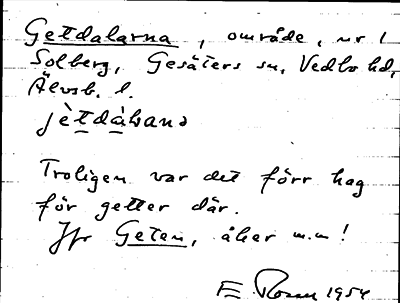 Getdalarna, område, nr 1
Solberg, Gesäters sn, Vedbo hd,
Älvsb. l.
jètdàɫana
Troligen var det förr hag
för getter där.
Jfr Geten, åker m.m!
E Rosen 1954